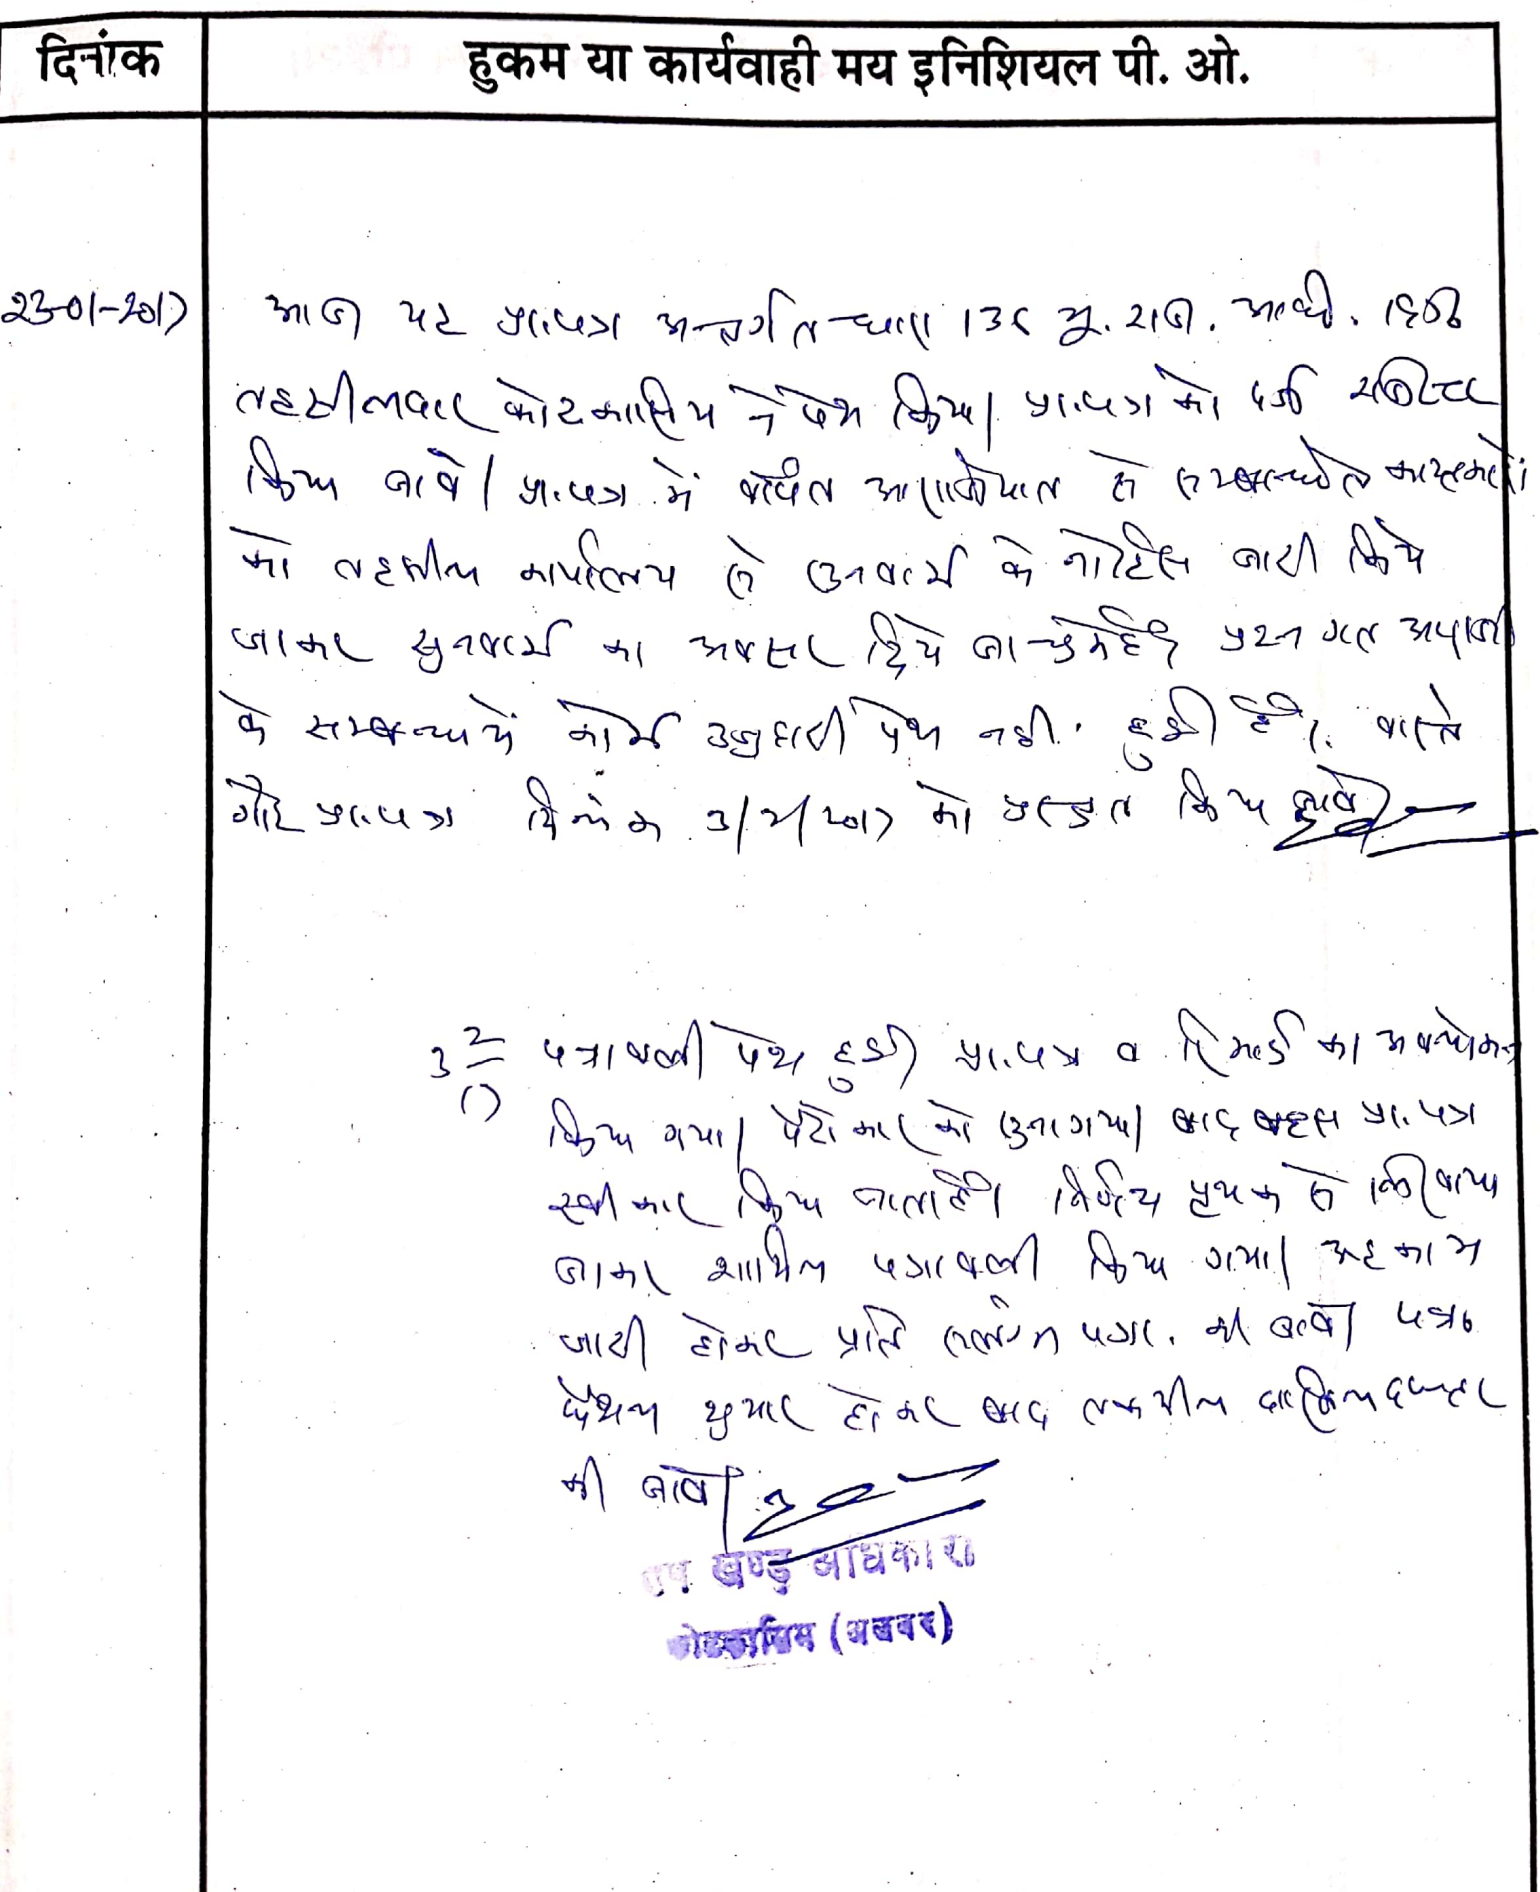 दिनांक
हुकम या कार्यवाही मय इनिशियल पी. ओ.
23-01-2017
आज यह प्रा.पत्र अन्तर्गत धारा 136 भू. राज. अधि. 1956
तहसीलदार कोटकासिम ने पेश किया। प्रा.पत्र को दर्ज रजिस्टर
किया जावे। प्रा.पत्र में वर्णित आराजीयात से सम्बन्धित काश्तकारों
को तहसील कार्यालय से सुनवाई के नोटिस जारी किये
जाकर सुनवाई का अवसर दिये जा चुके है। प्रश्नगत आराजी
के सम्बन्ध में कोई उजुरदारी पेश नही हुई है। वास्ते
गौर प्रा.पत्र दिनांक 3/2/2017 को प्रस्तुत किया जावे।
3 2 17 पत्रावली पेश हुई प्रा.पत्र व रिकार्ड का अवलोकन
किया गया। पैरोकार को सुना गया। बाद बहस प्रा.पत्र
स्वीकार किया जाता है। निर्णय पृथक से लिखाया
जाकर शामिल पत्रावली किया गया। अहकाम
जारी होकर प्रति संलग्न पत्रा. की जावे। पत्रा०
फैशल शुमार होकर बाद तकमील दाखिल दफ्तर
की जावे।
उप खण्ड अधिकारी
कोटकासिम (अलवर)